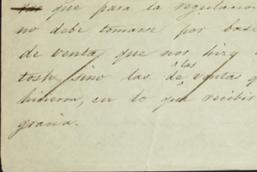 que para la regulacion
no debe tomarse por base
de venta, que nos hizo
sino las de las ventas q
hicieron, en lo que recibir
gracia.